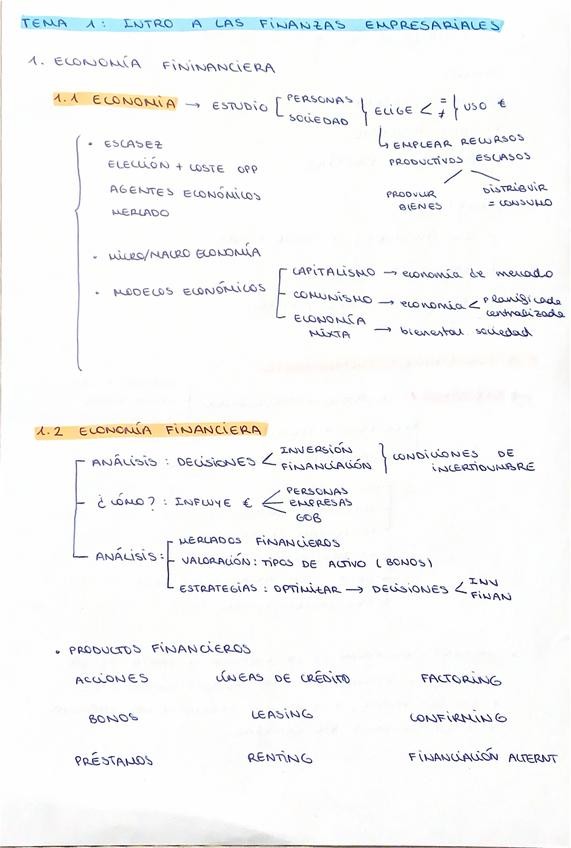 TEMA 1: INTRO A LAS FINANZAS EMPRESARIALES
1. ECONOMÍA FININANCIERA
1.1 ECONOMÍA → ESTUDIO [ PERSONAS SOCIEDAD } ELIGE < = ≠ } USO €
↳ EMPLEAR RECURSOS
PRODUCTIVOS ESCASOS
PRODUCIR BIENES
DISTRIBUIR = CONSUMO
• ESCASEZ
ELECCIÓN + COSTE OPP
AGENTES ECONÓMICOS
MERCADO
• MICRO/MACRO ECONOMÍA
• MODELOS ECONÓMICOS
CAPITALISMO → economía de mercado
COMUNISMO → economía < planificada centralizada
ECONOMÍA MIXTA → bienestar sociedad
1.2 ECONOMÍA FINANCIERA
ANÁLISIS : DECISIONES < INVERSIÓN FINANCIACIÓN } CONDICIONES DE INCERTIDUMBRE
¿CÓMO? : INFLUYE €
PERSONAS
EMPRESAS
GOB
ANÁLISIS:
MERCADOS FINANCIEROS
VALORACIÓN: TIPOS DE ACTIVO (BONOS)
ESTRATEGIAS : OPTIMIZAR → DECISIONES < INV FINAN
• PRODUCTOS FINANCIEROS
ACCIONES LÍNEAS DE CRÉDITO FACTORING
BONOS LEASING CONFIRMING
PRÉSTAMOS RENTING FINANCIACIÓN ALTERNT